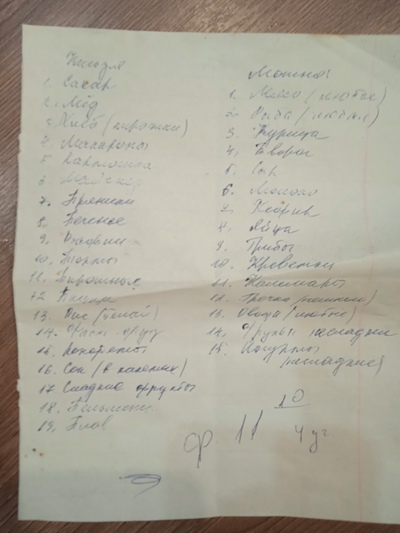 Нельзя
1. Сахар
2. Мёд
3. Хлеб (пирожки)
4. Макароны
5. Картошка
6. Майонез
7. Пряники
8. Печенье
9. Вафли
10. Торты
11. Пирожные
12.
13. Рис (белый)
14. Фаст фуд
15. Конфеты
16. Сок (в пакетах)
17. Сладкие фрукты
18. Пельмени
19. Плов
Можно:
1. Мясо (любое)
2. Рыба (любая)
3. Курица
4. Творог
5. Сыр
6. Молоко
7. Кефир
8. Яйца
9. Грибы
10. Креветки
11. Кальмары
12. Гречка
13. Овощи (любые)
14. Фрукты несладкие
15. Йогурты
(несладкие)
10
11